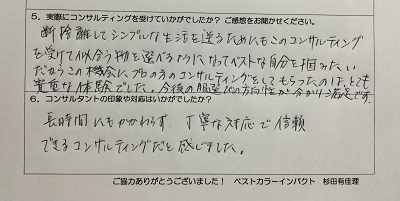 5. 実際にコンサルティングを受けていかがでしたか? ご感想をお聞かせください。
断捨離してシンプルな生活を送るためにもこのコンサルティング
を受けて似合う物を選べるようになってベストな自分を掴みたい
だからこの機会にプロの方のコンサルティングをしてもらったのは、とても
貴重な体験でした。今後の服選びの方向性が分かり満足です。
6. コンサルタントの印象や対応はいかがでしたか?
長時間にもかかわらず、丁寧な対応で信頼
できるコンサルティングだと感じました。
ご協力ありがとうございました! ベストカラーインパクト 杉田有佳理